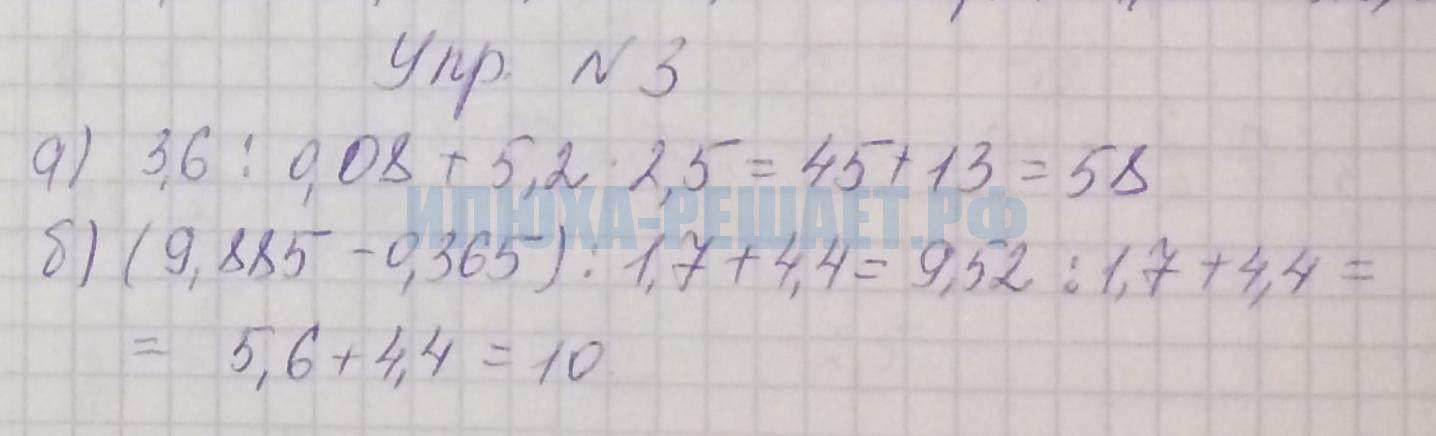 Упр. N 3
а) 3,6 : 0,08 + 5,2 · 2,5 = 45 + 13 = 58
ИЛЮХА-РЕШАЕТ.РФ
б) (9,885 - 0,365) : 1,7 + 4,4 = 9,52 : 1,7 + 4,4 =
= 5,6 + 4,4 = 10